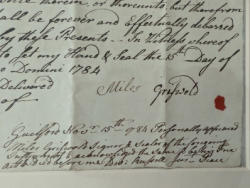 therein, or thereunto, but therefrom
all be forever and effectually debarred
by these Presents. In Witness whereof
to set my Hand & Seal the 15th Day of
o Domini 1784
Delivered
of
Miles Griswold
Guilford Nov 15th 1784 Personally Appeared
Miles Griswold Signer & Sealer of the foregoing
& acknowledged the Same to be his Own
act & deed before me Russell Just Peace